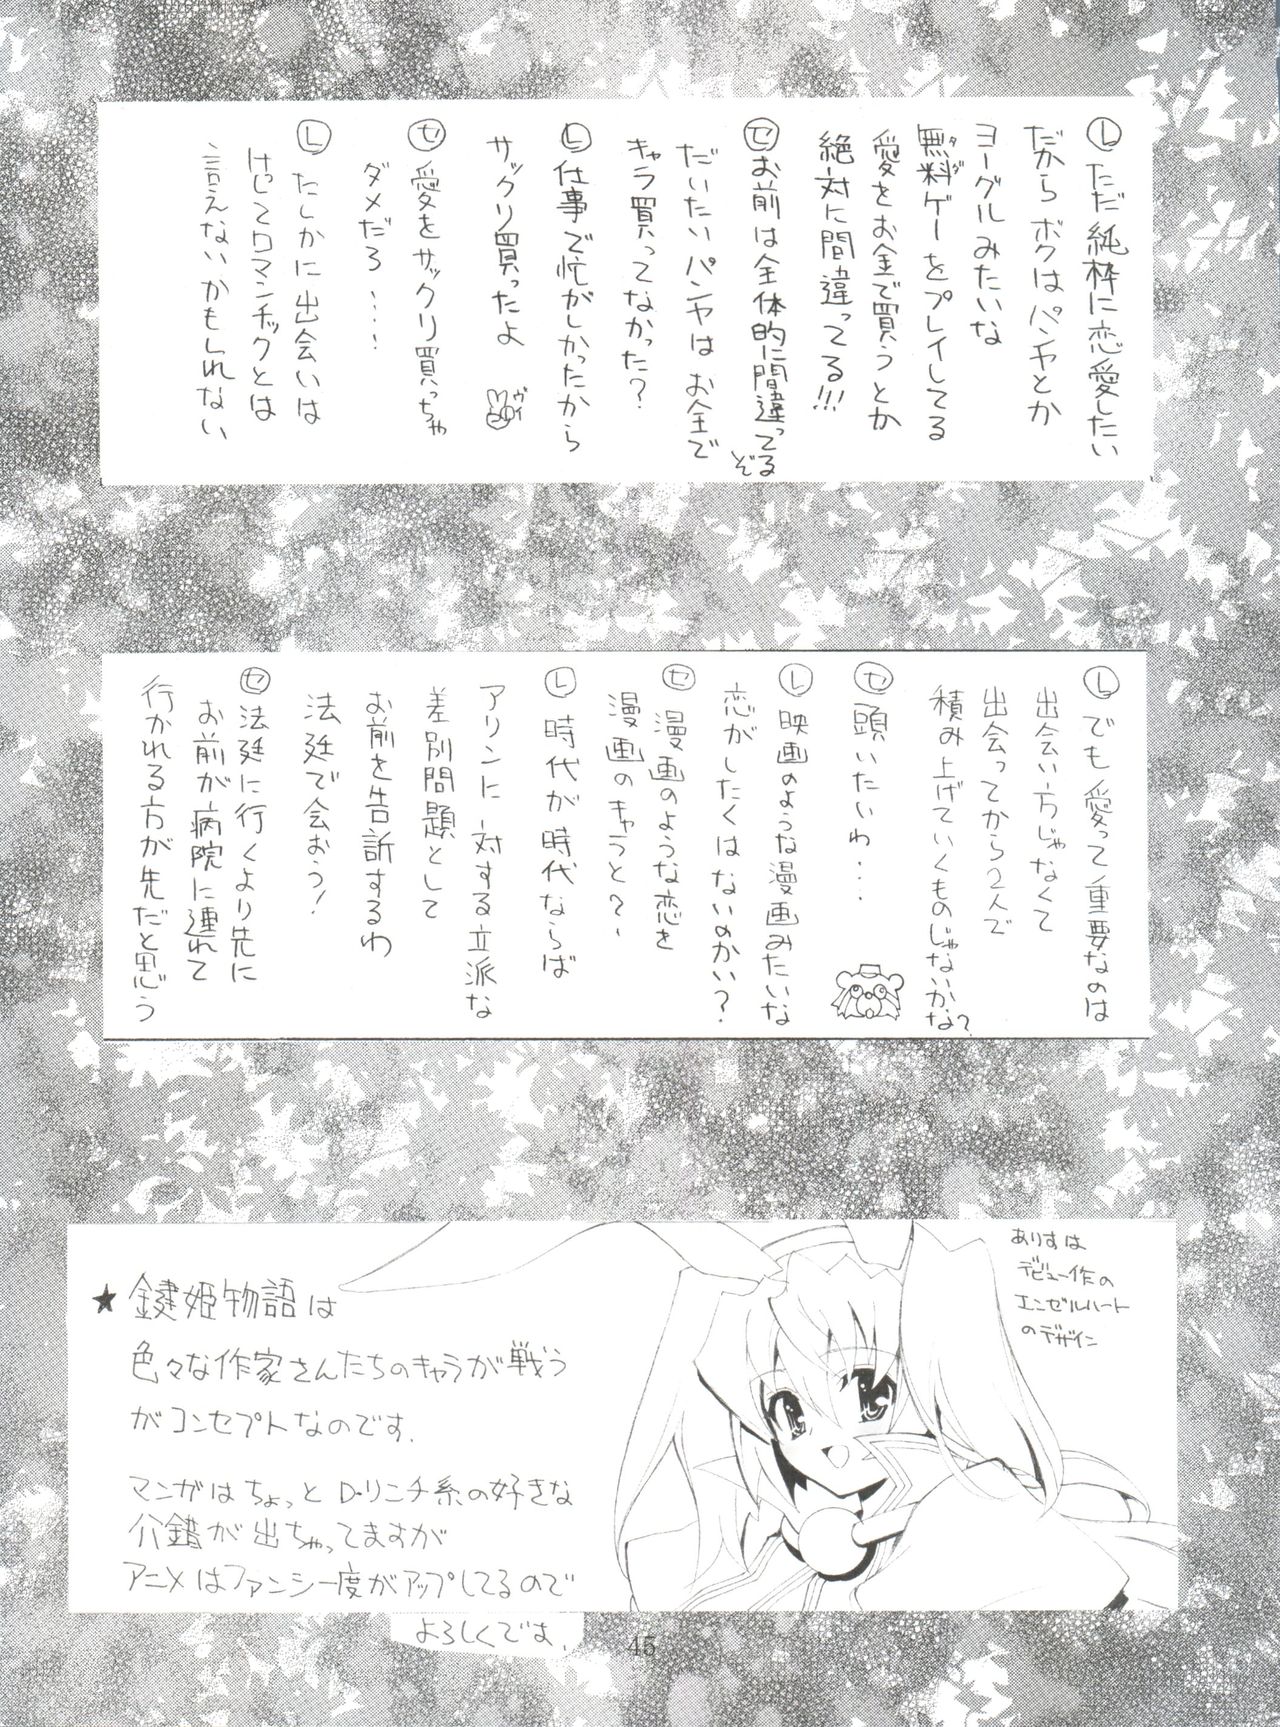 ㋹ただ純粋に恋愛したい
だからボクはパンヤとか
ヨーグルみたいな
無料ゲーをプレイしてる
タダ
愛をお金で買うとか
絶対に間違ってる!!!
㋝お前は全体的に間違ってるぞ
だいたいパンヤはお金で
キャラ買ってなかった?
㋹仕事で忙がしかったから
サックリ買ったよ
ヴイ
㋝愛をサックリ買っちゃ
ダメだろ・・・・
㋹たしかに出会いは
けしてロマンチックとは
言えないかもしれない
㋹でも愛って重要なのは
出会い方じゃなくて
出会ってから2人で
積み上げていくものじゃないかな?
㋝頭いたいわ・・・
㋹映画のような漫画みたいな
恋がしたくはないのかい?
㋝漫画のような恋を
漫画のキャラと?~
㋹時代が時代ならば
アリンに対する立派な
差別問題として
お前を告訴するわ
法廷で会おう!
㋝法廷に行くより先に
お前が病院に連れて
行かれる方が先だと思う
ありすは
デビュー作の
エンゼルハート
のデザイン
★鍵姫物語は
色々な作家さんたちのキャラが戦う
がコンセプトなのです.
マンガはちょっとD・リンチ系の好きな
介錯が出ちゃってますが
アニメはファンシー度がアップしてるので
よろしくです.
45